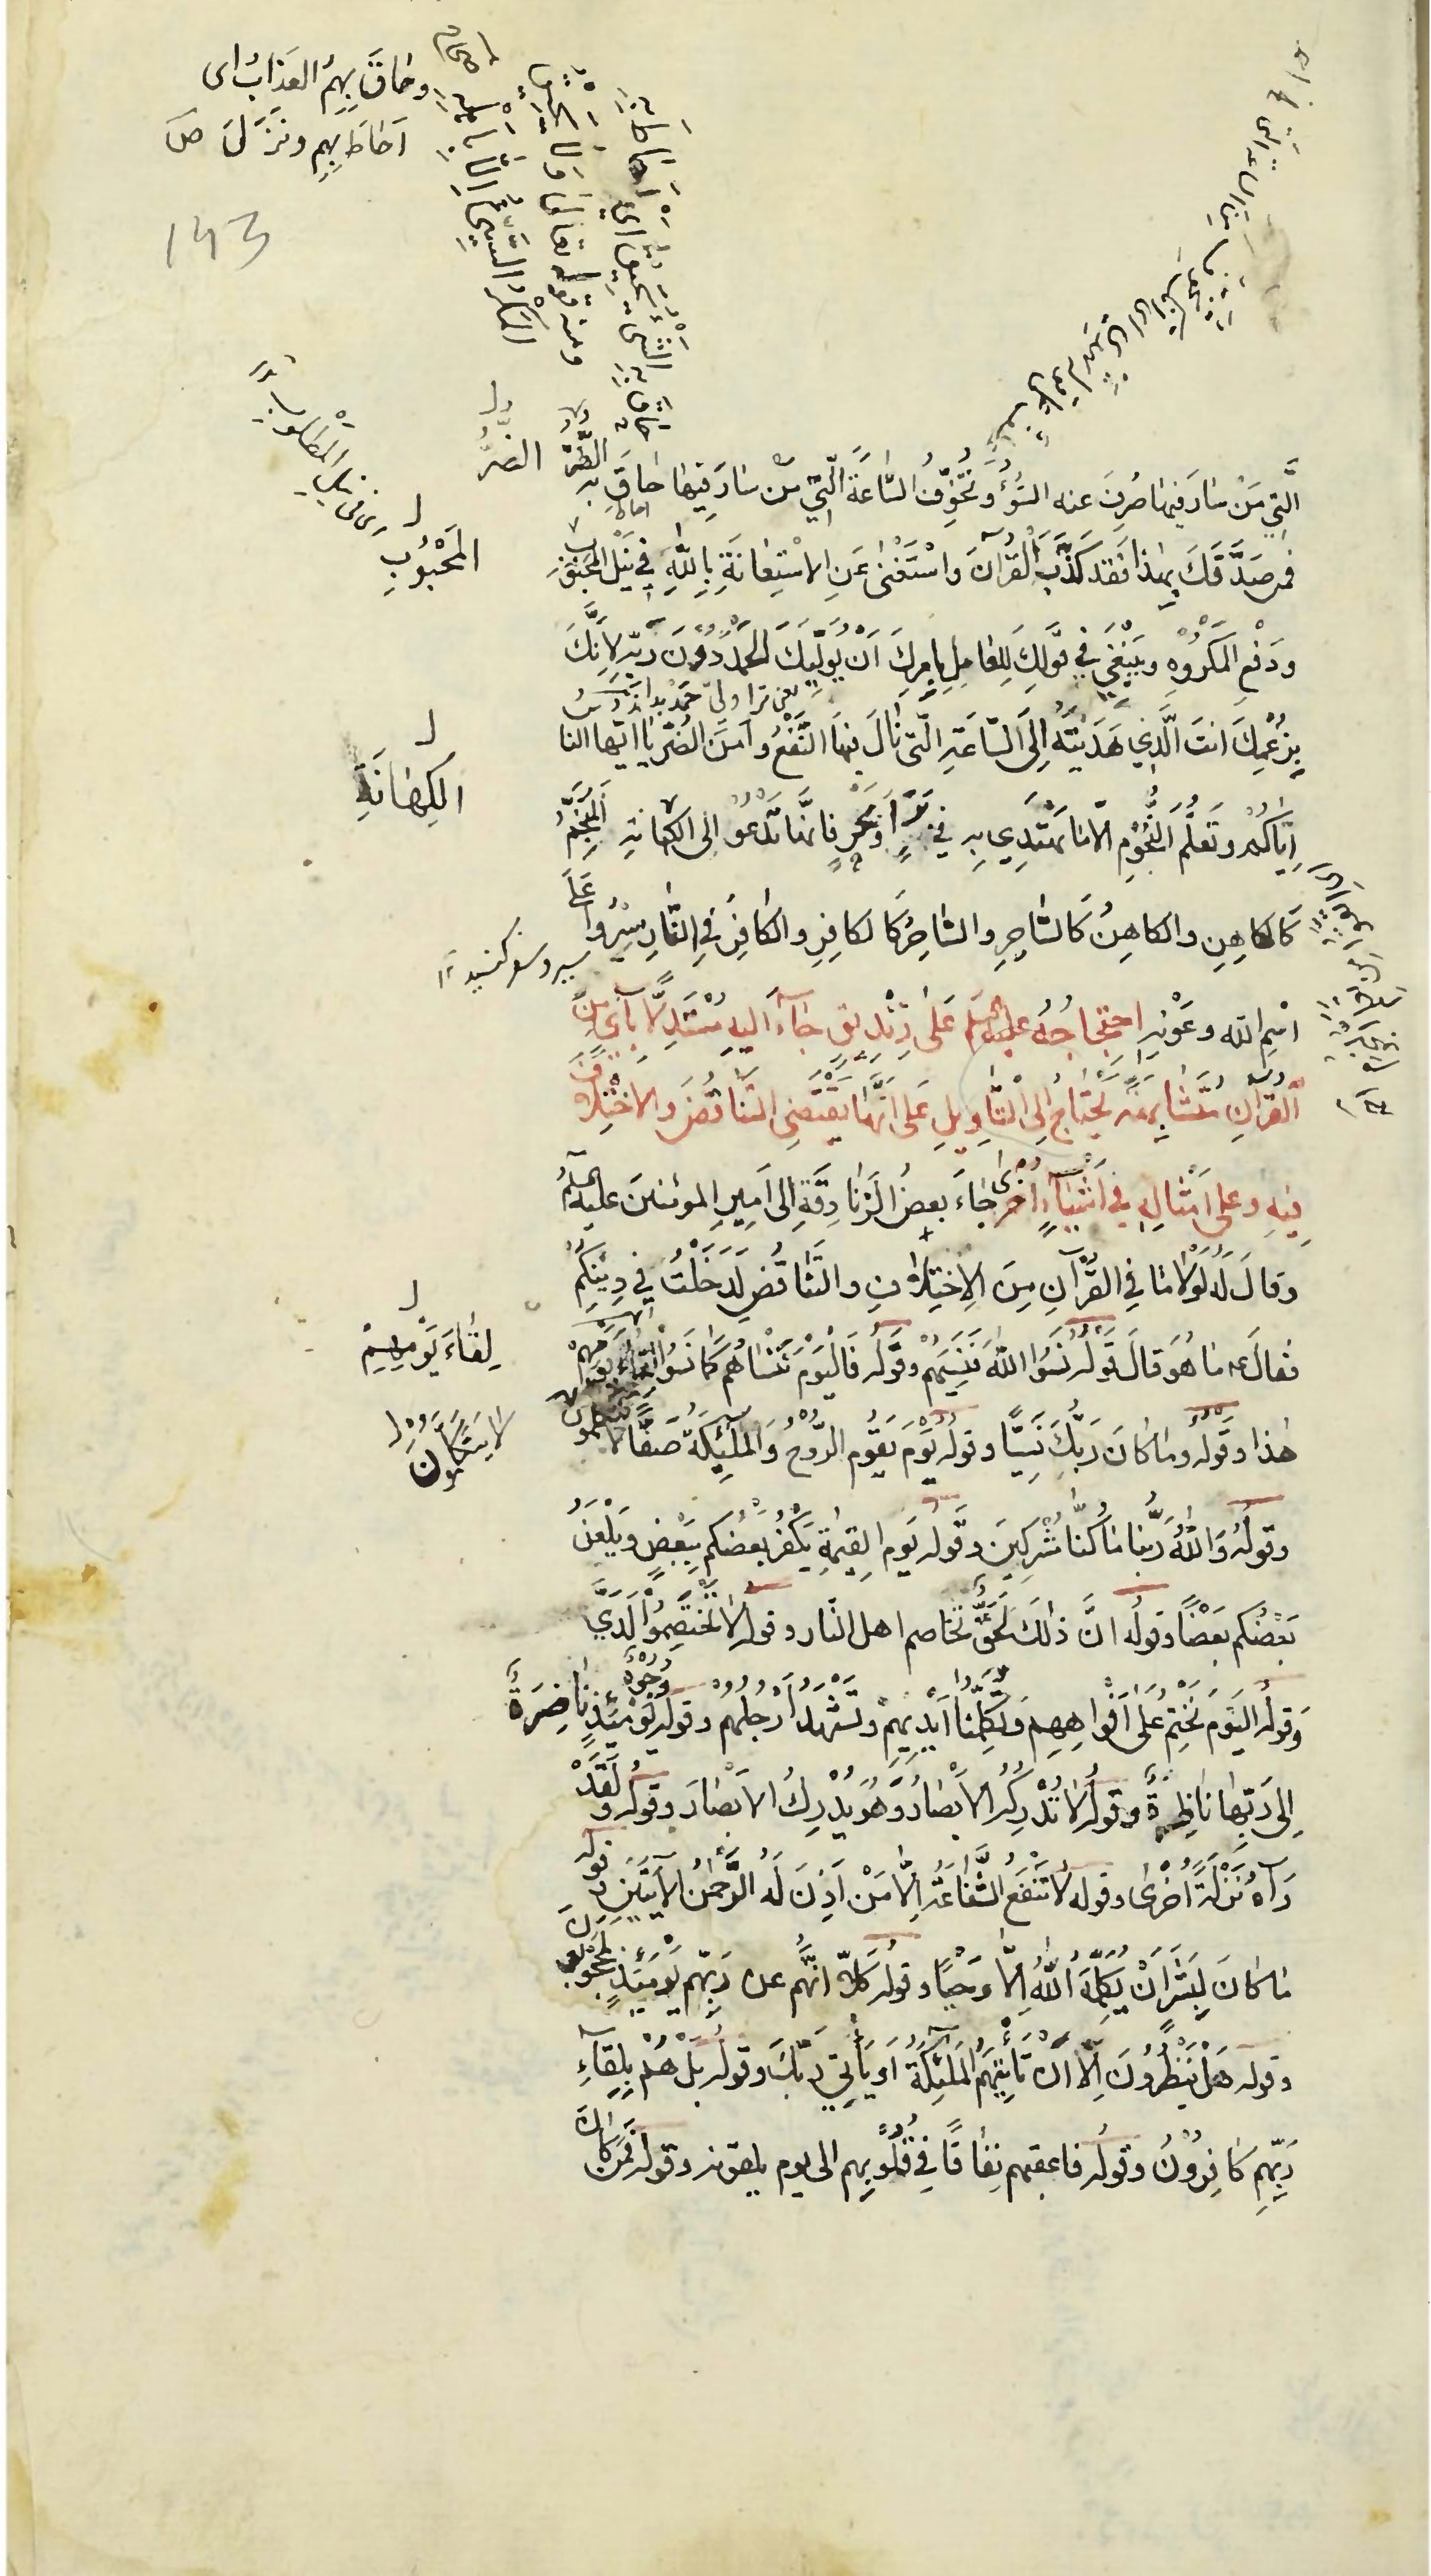 وحَاقَ بِهِمُ العَذَابُ اى
اَحَاطَ بِهِم ونَزَلَ ص
143
الَّتِي مَنْ سَارَ فيهَا صُرِفَ عنه السُّوُءُ وتُخَوِّفُ السَّاعَةَ الَّتِيْ مَنْ سَارَ فِيهَا حَاقَ بِهِ الضُّرُّ
الضُّرُّ
احاط
فمن صَدَّقَكَ بِهٰذا فَقَد كَذَّبَ الْقُرْآنَ واسْتَغْنٰى عَنِ الاسْتِعَانَةِ بِاللّٰهِ فِي نَيْلِ المحبوب
المَحْبُوُبِ
ودَفْعِ المَكْرُوْهِ ويَنْبَغِي في قَوْلِكَ لِلعَامِلِ بِاَمرِكَ اَنْ يُوَلِّيَكَ الحَمْدَ دُوْنَ رَبِّهِ لِاَنَّكَ
بِزُعْمِكَ انتَ الَّذِي هَدَيْتَهُ اِلَى السَّاعَةِ الَّتى نَالَ فيهَا النَّفْعَ وَاَمِنَ الضُّرَّ يا ايّها الناس
اِيَّاكُمْ وتَعَلُّمَ النُّجُوْمِ الّا مَا يُهْتَدِي بِهِ فِي بَرٍّ اَوْ بَحْرٍ فانَّهَا تَدْعُوْ الى الكهانة المُنَجِّمُ
الكِهَانَةِ
كَالكاهِنِ والكاهِنُ كَالسَّاحِرِ والسَّاحِرُ كَالكَافِرِ والكَافِرُ فِي النَّارِ سِيْرُوا عَلَى
سير وسفر كنيد
اسْمِ الله وعَوْنِهِ احتِجَاجُهُ عليه السلم عَلٰى زِنْدِيقٍ جَاءَ اليهِ مُسْتَدِلًّا بِآىٍ مِنَ
القُرْآنِ مُتَشَابِهَةٍ تَحْتَاجُ اِلَى التَّأوِيلِ عَلى اَنَّهَا تَقْتَضِى التَّنَاقُضَ والاخْتِلافَ
فِيْهِ وعلى اَمْثَالِهِ في اَشْيَاءَ اُخْرٰى جَاءَ بعضُ الزَّنَادِقَةِ اِلى اَمِيرِ المؤمنينَ عليه السلم
وقالَ لَهُ لَوْلَا مَا فِي القُرْآنِ مِنَ الاِخْتِلافِ والتَّنَاقُضِ لَدَخَلْتُ في دِيْنِكُمْ
فقالَ ع مَا هُوَ قالَ قَوْلُهُ نَسُوا اللّٰهَ فَنَسِيَهُمْ وقَوْلُهُ فَالْيَوْمَ نَنْسَاهُمْ كَمَا نَسُوْا لِقَاءَ يَومِهِمْ
لِقَاءَ يَوْمِهِمْ
هٰذا وقَولُه ومَا كَانَ رَبُّكَ نَسِيًّا وقولُه يَوْمَ يَقُومُ الرُّوْحُ وَالْمَلٰئِكَةُ صَفًّا لا يتكلمون
لا يَتَكَلَّمُوْنَ
وقولُهُ وَاللّٰهُ رَبِّنَا مَا كُنَّا مُشْرِكِينَ وقَوْلُهُ يَوم القِيٰمَةِ يَكْفُرُ بَعْضُكم بِبَعْضٍ ويَلْعَنُ
بَعْضُكم بَعْضًا وقولُه انَّ ذلكَ لَحَقٌّ تَخَاصم اهل النّار وقوله لا تَخْتَصِمُوْا لَدَيَّ
وَقولُه اليَوْمَ نَخْتِمُ عَلٰى اَفْوَاهِهِم وَتُكَلِّمُنَا اَيْدِيهِمْ وتَشْهَدُ اَرْجُلُهُمْ وقوله وُجُوْهٌ يَوْمَئِذٍ نَاضِرَةٌ
اِلى رَبِّهَا نَاظِرَةٌ وقولُه لا تُدْرِكُهُ الاَبْصَارُ وَهُوَ يُدْرِكُ الاَبْصَارَ وقولُه ولَقَدْ
رَآهُ نَزْلَةً اُخْرٰى وقوله لا تَنْفَعُ الشَّفَاعَةُ اِلَّا مَنْ اَذِنَ لَهُ الرَّحمٰنُ الآيَتَيْنِ وقوله
مَا كَانَ لِبَشَرٍ اَنْ يُكَلِّمَهُ اللّٰهُ اِلَّا وَحْيًا وقولُه كَلَّا انَّهُم عن رَبِّهِم يَومَئِذٍ لَمَحْجُوْبُونَ
وقوله هَلْ يَنْظُرُونَ اِلَّا اَنْ تَأتِيَهُمُ المَلٰئِكَةُ اَو يَأتِيَ رَبُّكَ وقولُه بَلْ هُمْ بِلِقَاءِ
رَبِّهِم كَافِرُوْنَ وقولُه فاعقبهم نِفَاقًا فِي قُلُوْبِهِم الى يوم يلقونه وقوله فَمَنْ كَانَ